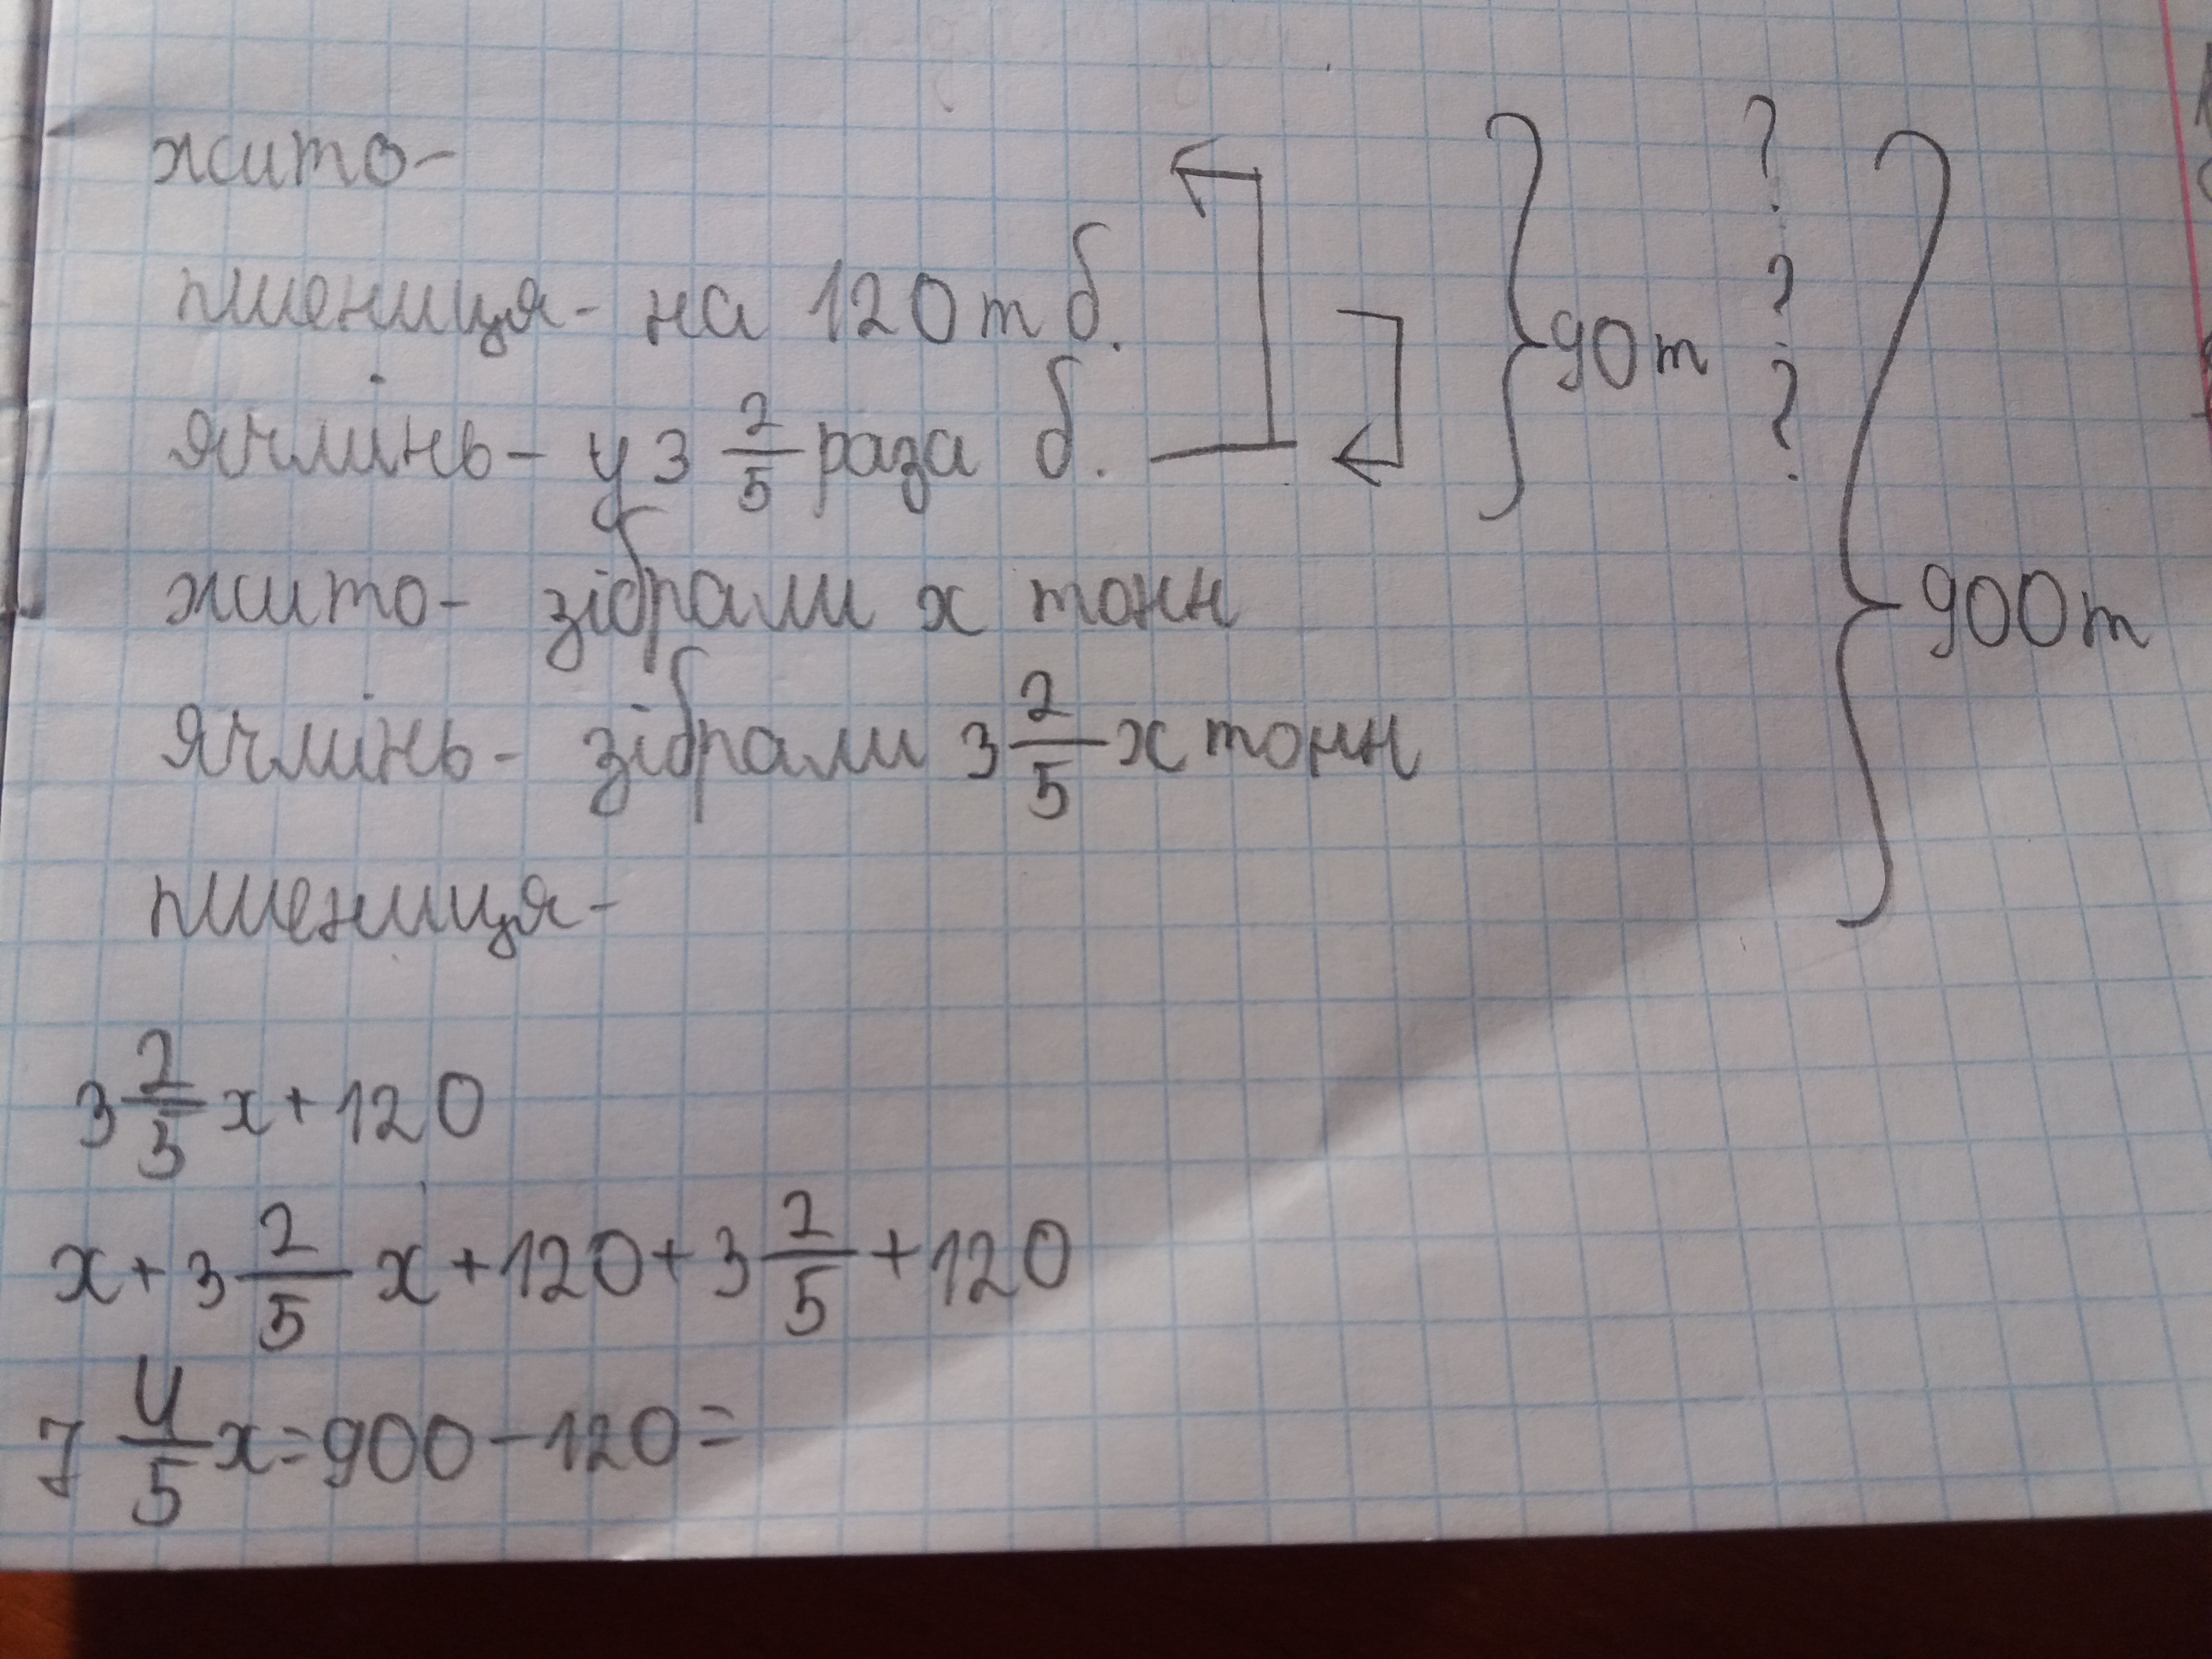 жито- ?
пшениця- на 120 т б. } 90 т ?
ячмінь- у 3 2/5 раза б. ?
жито- зібрали x тонн } 900 т
ячмінь- зібрали 3 2/5 x тонн
пшениця-
3 2/3 x + 120
x + 3 2/5 x + 120 + 3 2/5 + 120
7 4/5 x = 900 - 120 =